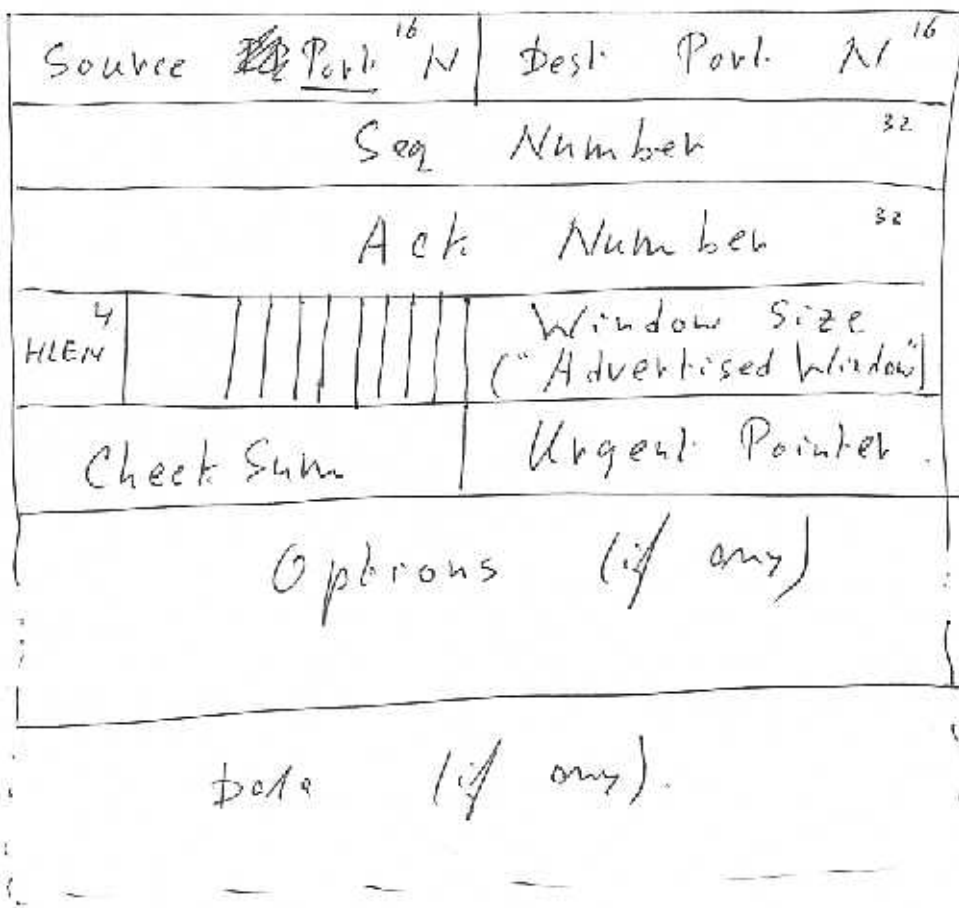 Source Port N 16 Dest Port N 16
Seq Number 32
Ack Number 32
HLEN 4
Window Size
("Advertised Window")
CheckSum Urgent Pointer.
Options (if any)
Data (if any).